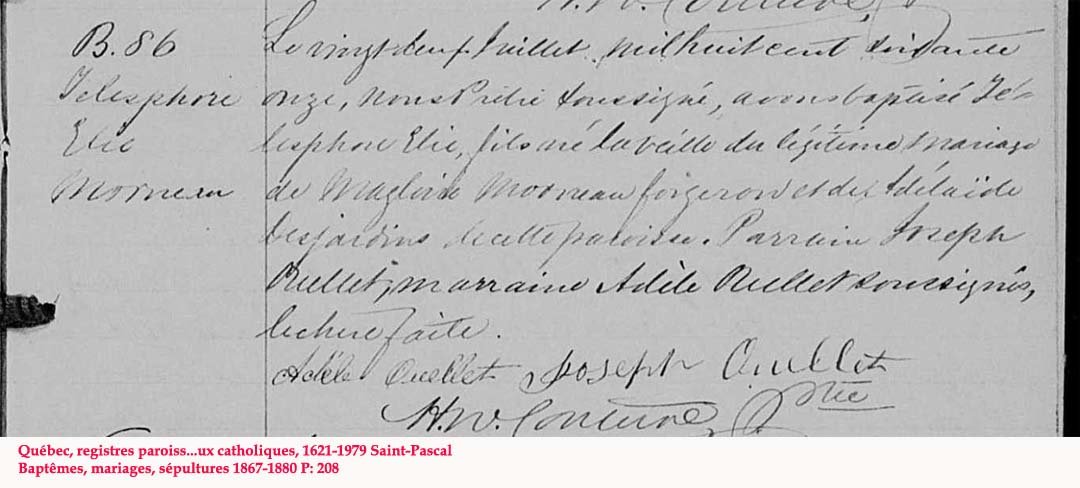 B. 86
Telesphore
Elie
Morneau
Le vingt deux Juillet, mil huit cent soixante
onze, nous Prêtre soussigné, avons baptisé Té-
lesphore Elie, fils né la veille du légitime mariage
de Magloire Morneau forgeron et de Adélaïde
Desjardins de cette paroisse. Parrain Joseph
Ouellet, marraine Adèle Ouellet soussignés,
lecture faite.
Adèle Ouellet Joseph Ouellet
Ptre
Québec, registres paroiss...ux catholiques, 1621-1979 Saint-Pascal
Baptêmes, mariages, sépultures 1867-1880 P: 208